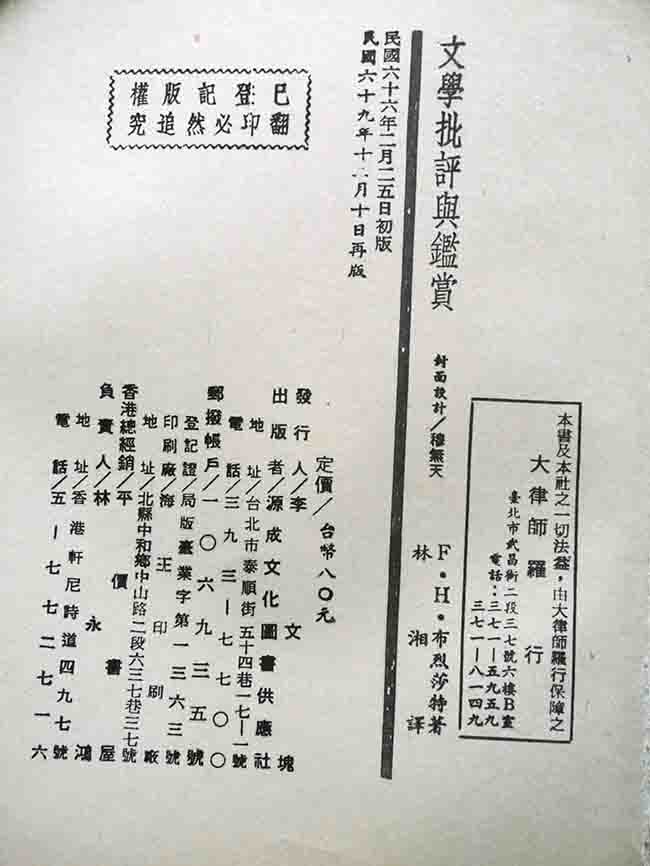 本書及本社之一切法益，由大律師羅行保障之
大律師羅行
臺北市武昌街二段三七號六樓B室
電話：三七一—五九五九
三七一—八一四九
文學批評與鑑賞
封面設計／穆無天
F·H·布烈莎特著
林湘譯
民國六十六年二月二五日初版
民國六十九年十二月十日再版
已登記版權
翻印必然追究
定價／台幣八〇元
發行人／李文塊
出版者／源成文化圖書供應社
地址／台北市泰順街五十四巷一七—一號
電話／三九三—七七〇〇
郵撥帳戶／一〇六九三五號
登記證／局版臺業字第一三六三號
印刷廠／海王印刷廠
地址／北縣中和鄉中山路二段六三七巷三七號
香港總經銷／平價書屋
負責人／林永鴻
地址／香港軒尼詩道四九七號
電話／五—七七二七一六